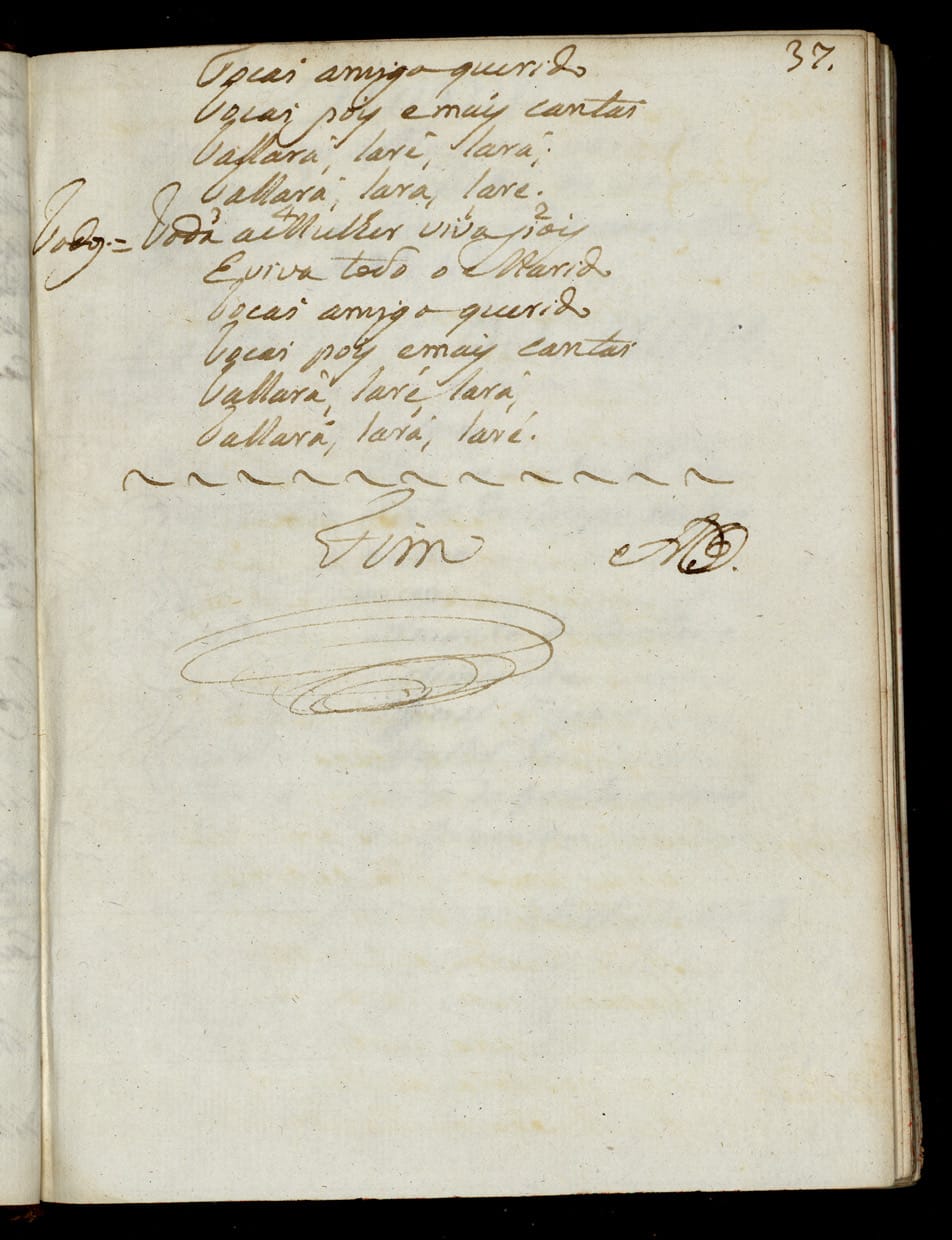 37.
Tocai amigo querido
Tocai pois e mais cantai
Tallará, laré, lará;
Tallará, lará, laré.
Todos = Toda a Mulher viva pois
E viva todo o Marido
Tocai amigo querido
Tocai pois e mais cantai
Tallará, laré, lará,
Tallará, lará, laré.
Fim